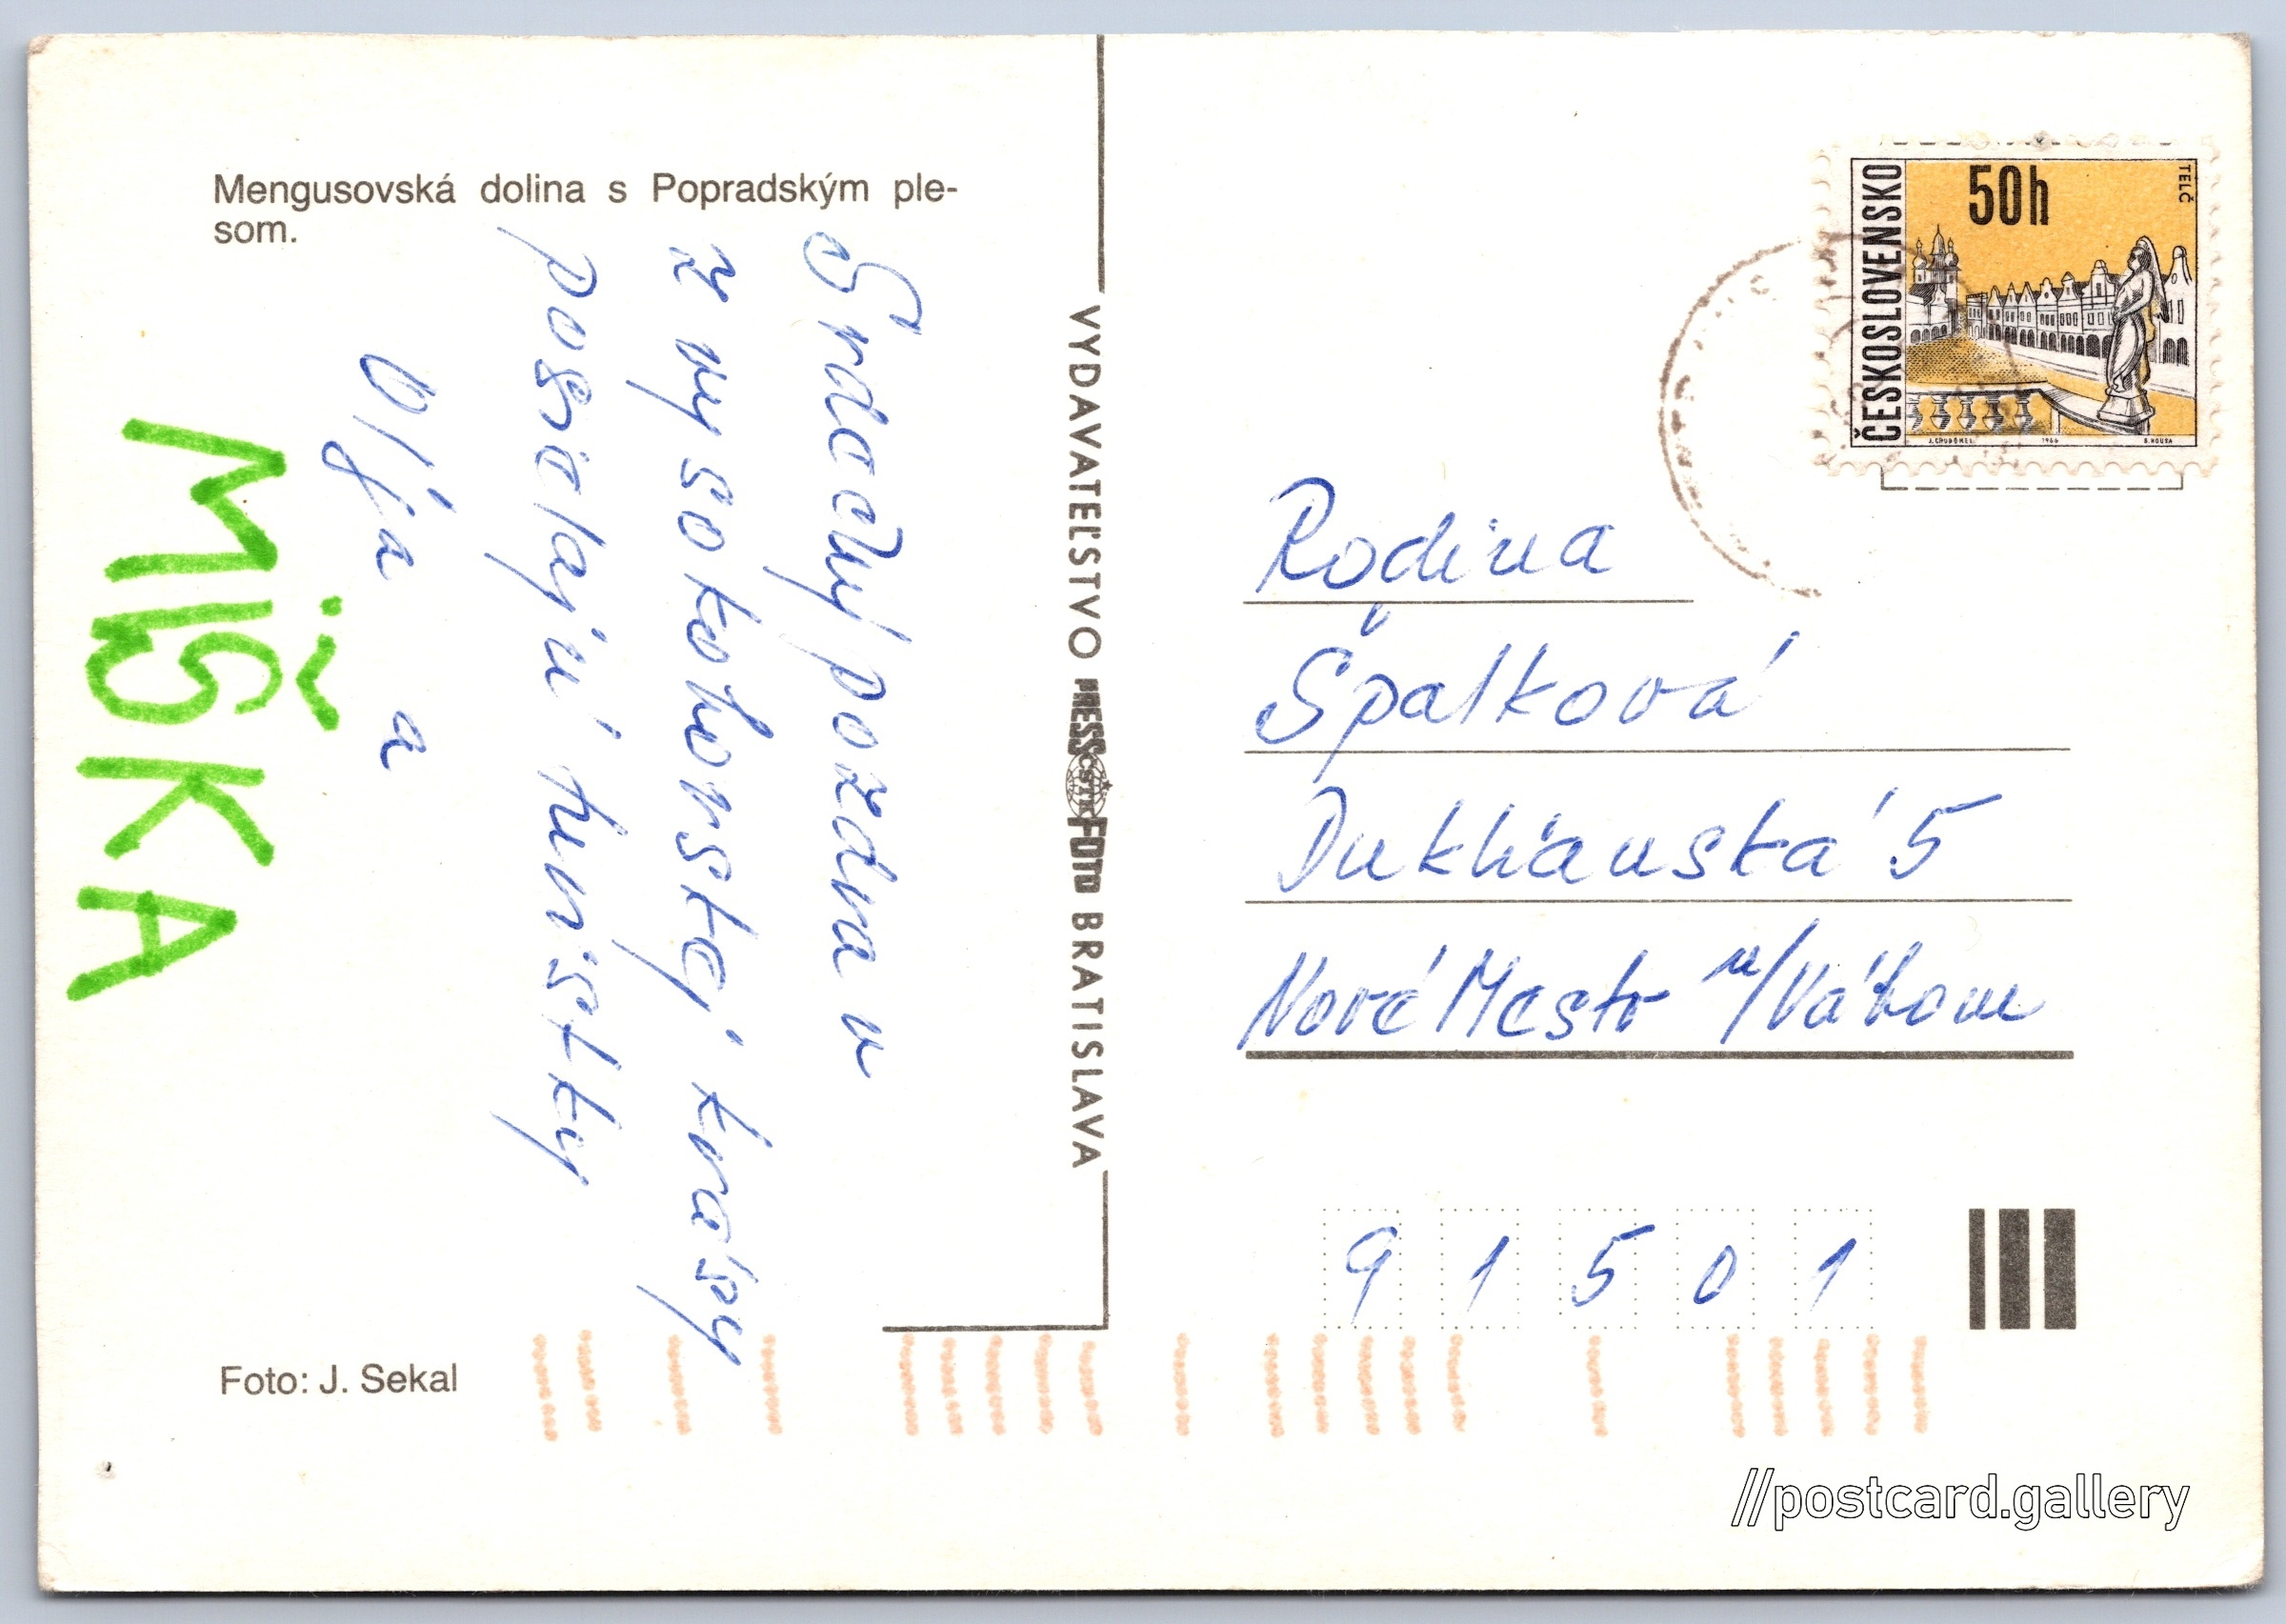 Mengusovská dolina s Popradským ple-
som.
Srdečný pozdrav
z vysokohorskej krásy
posielajú turistky
Oľja a
MIŠKA
Foto: J. Sekal
VYDAVATEĽSTVO PRESSFOTO BRATISLAVA
ČESKOSLOVENSKO
50h
TELČ
J. CHUDOMEL 1966 B. HOUSA
Rodina
Špalková
Dukhanská 5
Nové Mesto n/Váhom
91501
//postcard.gallery